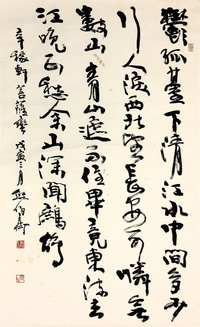 鬱孤臺下清江水中間多少
行人淚西北望長安可憐無
數山青山遮不住畢竟東流去
江晚正愁余山深聞鷓鴣
辛稼軒菩薩蠻 戊寅三月